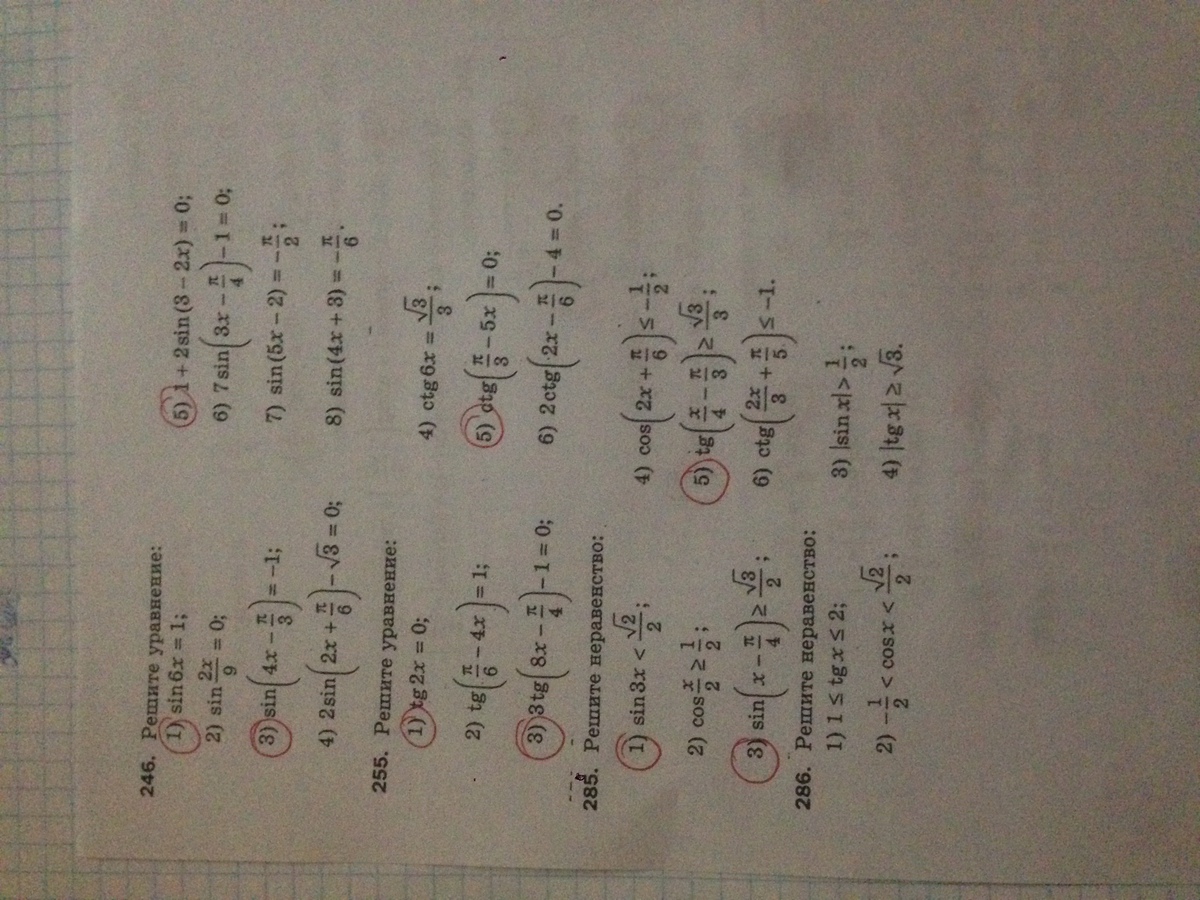 246. Решите уравнение:
1) sin 6x = 1;
2) sin 2x/9 = 0;
3) sin(4x − π/3) = −1;
4) 2 sin(2x + π/6) − √3 = 0;
5) 1 + 2 sin(3 − 2x) = 0;
6) 7 sin(3x − π/4) − 1 = 0;
7) sin(5x − 2) = −π/2;
8) sin(4x + 3) = −π/6.
255. Решите уравнение:
1) tg 2x = 0;
2) tg(π/6 − 4x) = 1;
3) 3 tg(8x − π/4) − 1 = 0;
4) ctg 6x = √3/3;
5) ctg(π/3 − 5x) = 0;
6) 2 ctg(2x − π/6) − 4 = 0.
285. Решите неравенство:
1) sin 3x < √2/2;
2) cos x/2 ≥ 1/2;
3) sin(x − π/4) ≥ √3/2;
4) cos(2x + π/6) ≤ −1/2;
5) tg(x/4 − π/3) ≥ √3/3;
6) ctg(2x/3 + π/5) ≤ −1.
286. Решите неравенство:
1) 1 ≤ tg x ≤ 2;
2) −1/2 < cos x < √2/2;
3) |sin x| > 1/2;
4) |tg x| ≥ √3.